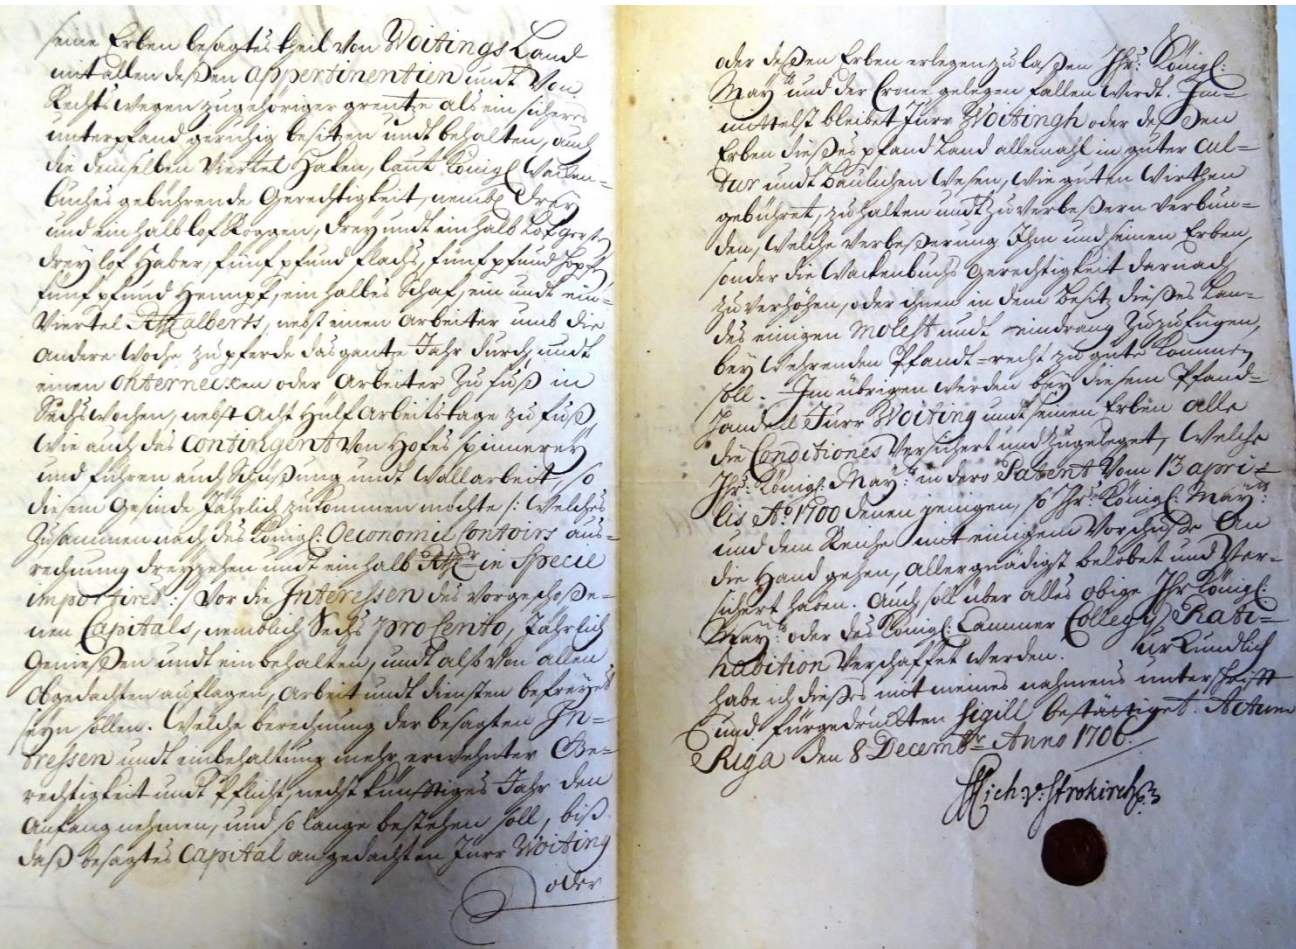 seine Erben besagtes theil von Woitings Land
mit allen deßen appertinentien undt von
Rechts wegen zugehöriger grentze als ein sicheres
unterpfand geruhig besitzen undt behalten, auch
die demselben Viertel Haken, laut Königl. Wacken-
buches gebührende Gerechtigkeit, nembl. drey
und ein halb lof Roggen, drey undt ein halb Lof gersten
drey lof Haber, fünf pfund flachs, fünf pfund Hopffen
fünf pfund Hempf, ein halbes Schaf, ein undt ein-
Viertel Rthl alberts, nebst einen Arbeiter umb die
andere Woche zu pferde das gantze Jahr durch, undt
einen oder Arbeiter zu fuß in
Sechs Wochen, nebst Acht Hülf Arbeitstage zu fuß
wie auch das Contingent von Hofes spinnerey
und führen auch Schüßung undt Wallarbeit, so
diesem Gesinde Jährlich zukommen möchte /: welches
zusammen nach des Königl: Oeconomie Contoirs aus-
rechnung dreyzehen undt ein halb Rthlr in Specie
importiret :/ vor die Interessen des vorgeschoße-
nen Capitals, nemblich Sechs pro Cento, Jährlich
genießen undt einbehalten, undt alß von allen
obgedachten auflagen, Arbeit undt diensten befreyet
seyn sollen. Welche berechnung der besagten In-
tressen undt einbehaltung mehr erwehnter Ge-
rechtigkeit undt Pflicht, nechst künfftiges Jahr den
Anfang nehmen, und so lange bestehen soll, biß
daß besagtes Capital an gedachten Jurr Woiting
oder
oder deßen Erben erlegen zu laßen Ihr: Königl:
May.tt und der Crone gelegen fallen wirdt. Im-
mittelst bleibet Jurr Woitingh oder deßen
Erben dießes pfand Land allemahl in guter Cul-
tur undt baulichen Wesen, wie guten Wirthen
gebühret, zu halten undt zu verbeßern verbun-
den, Welche verbeßerung Ihm und seinen Erben,
sonder die Wackenbuchs Gerechtigkeit darnach
zu verhöhen, oder ihnen in dem besitz dießes Lan-
des einigen Molest undt eindrang zuzufügen,
bey wehrenden Pfandt-recht zu gute kommen
soll. Im übrigen werden bey diesem Pfand-
handel Jurr Woiting undt seinen Erben alle
die Conditiones versichert und zugeleget, Welche
Ihr: Königl: May:tt in dero Patent vom 13 apri-
lis Aõ 1700 denen jenigen, so Ihr: Königl: May:tt
und dem Reiche mit einigem Vorschuße an
die Hand gehen, allergnädigst belobet und Ver-
sichert haben. Auch soll über alles obige Ihr Königl:
May:tt oder des Königl: Cammer Collegij Rati-
habition verschaffet werden. Urkundlich
habe ich dießes mit meines nahmens unterschrifft
und fürgedruckten Sigill bestättiget. Actum
Riga den 8 Decembr: Anno 1706.
Mich: v: Strokirch